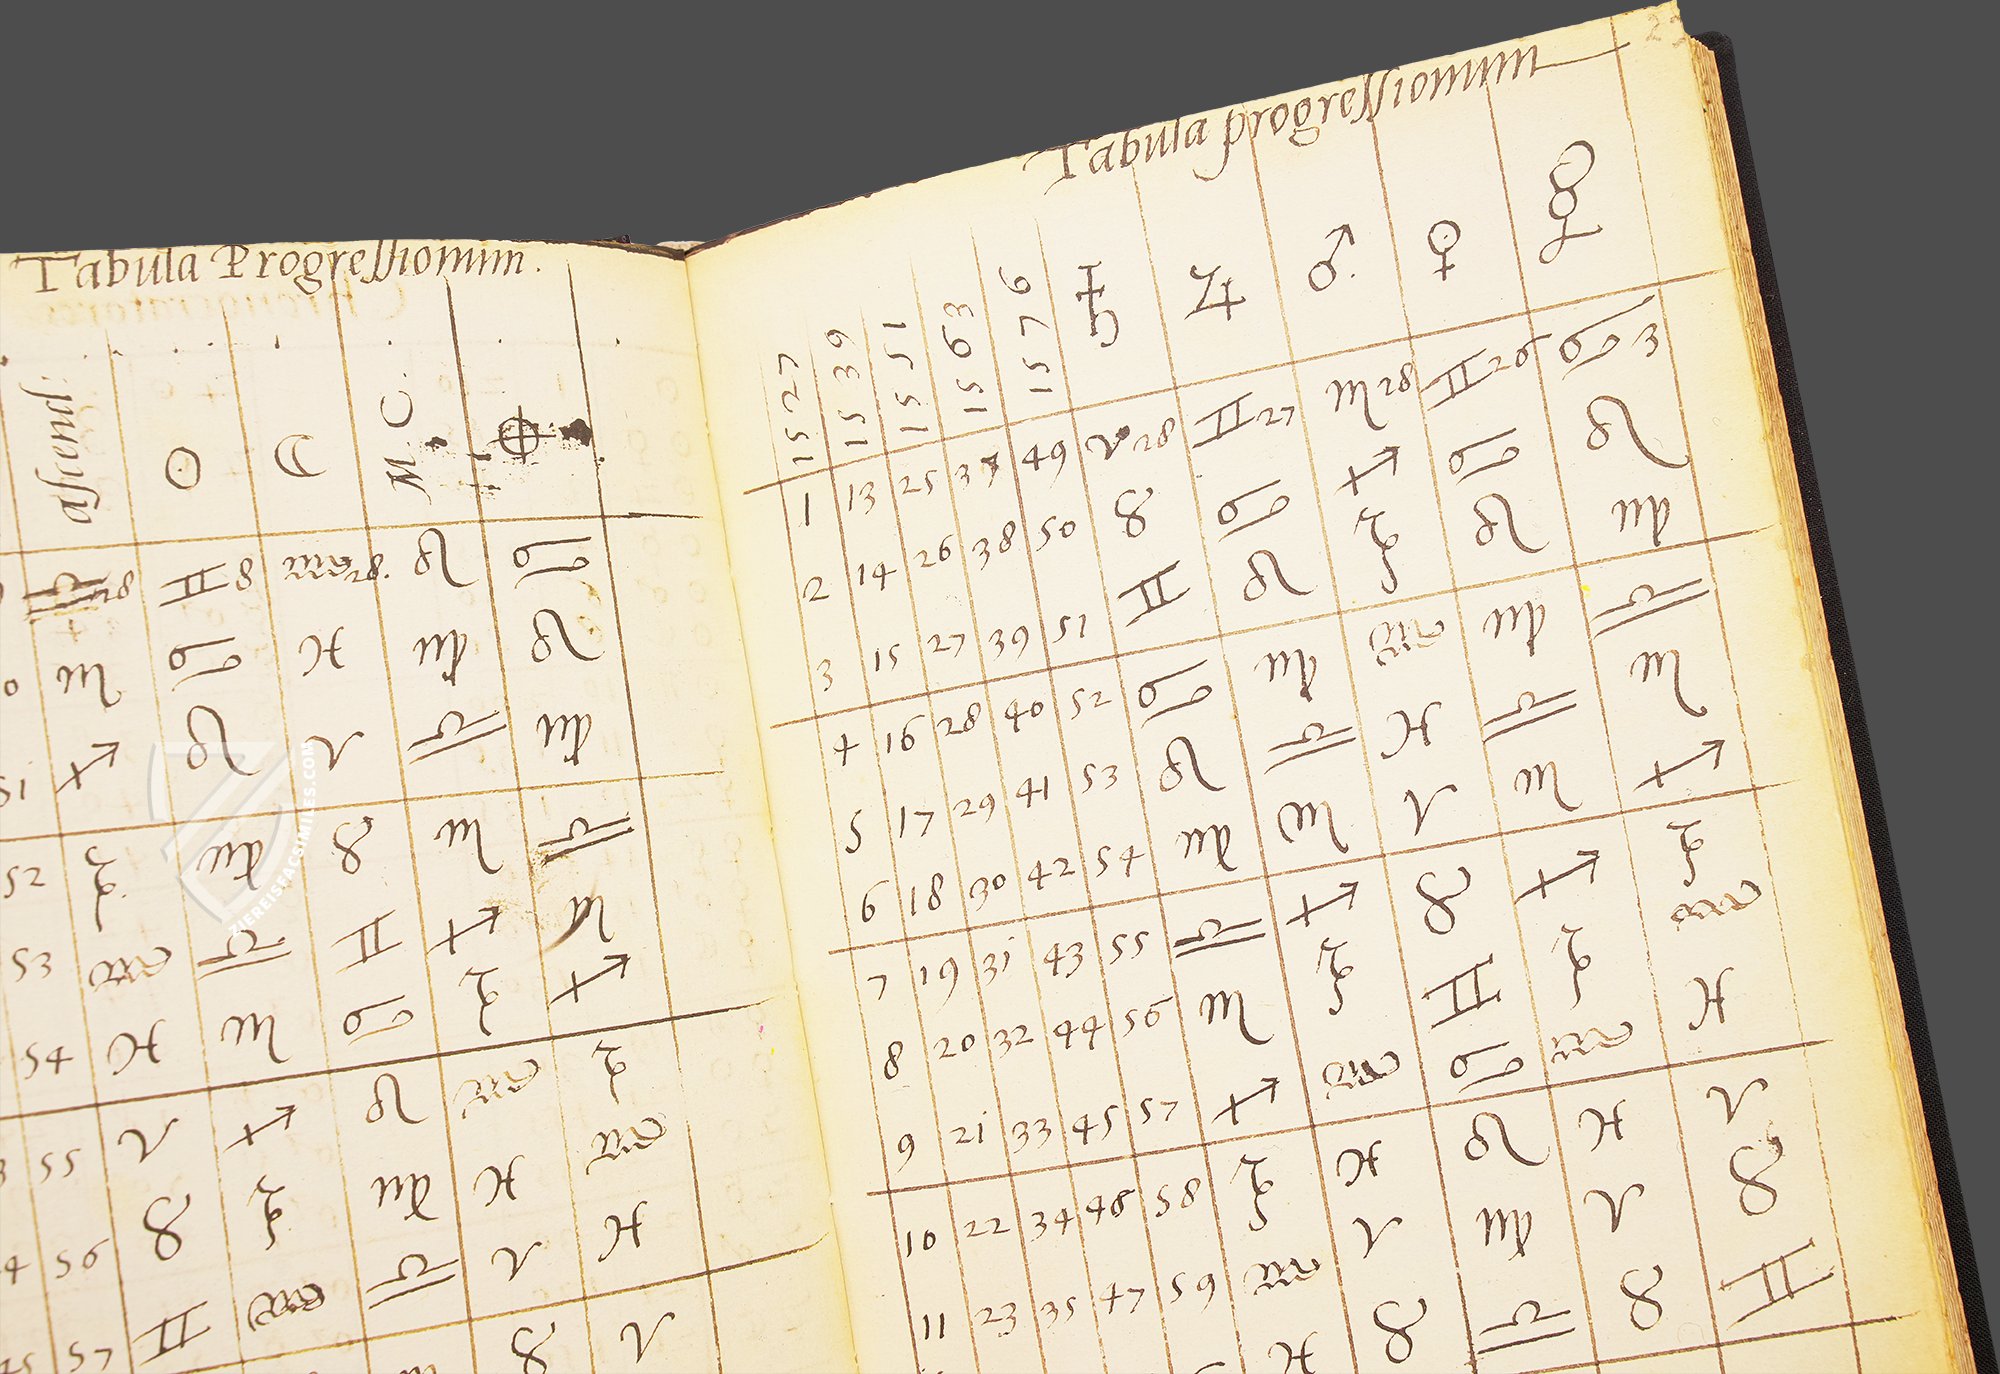 Tabula Progressionum.
ascend: ☉ ☽ M. C. ⊕
♎ 28 ♊ 8 ♒ 28. ♌ ♋
♏ ♋ ♓ ♍ ♌
51 ♐ ♌ ♈ ♎ ♍
52 ♑ ♍ ♉ ♏ ♎
53 ♒ ♎ ♊ ♐ ♏
54 ♓ ♏ ♋ ♑ ♐
55 ♈ ♐ ♌ ♒ ♑
56 ♉ ♑ ♍ ♓ ♒
57 ♊ ♒ ♎ ♈ ♓
♉ ♈
Tabula progressionum
1527 1539 1551 1563 1576 ♄ ♂ ♀ ☿
1 13 25 37 49 ♈ 28 ♊ 27 ♏ 28 ♊ 26 ♋ 3
2 14 26 38 50 ♉ ♋ ♐ ♋ ♌
3 15 27 39 51 ♊ ♌ ♑ ♌ ♍
4 16 28 40 52 ♋ ♍ ♒ ♍ ♎
5 17 29 41 53 ♌ ♎ ♓ ♎ ♏
6 18 30 42 54 ♍ ♏ ♈ ♏ ♐
7 19 31 43 55 ♎ ♐ ♉ ♐ ♑
8 20 32 44 56 ♏ ♑ ♊ ♑ ♒
9 21 33 45 57 ♐ ♒ ♋ ♒ ♓
10 22 34 46 58 ♑ ♓ ♌ ♓ ♈
11 23 35 47 59 ♒ ♈ ♍ ♈ ♉
♓ ♉ ♎ ♉ ♊
ZIEREISFACSIMILES.COM